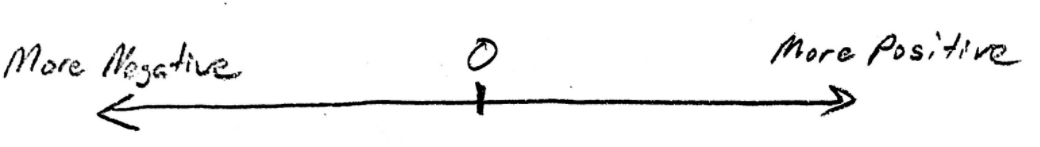 More Negative
0
More Positive